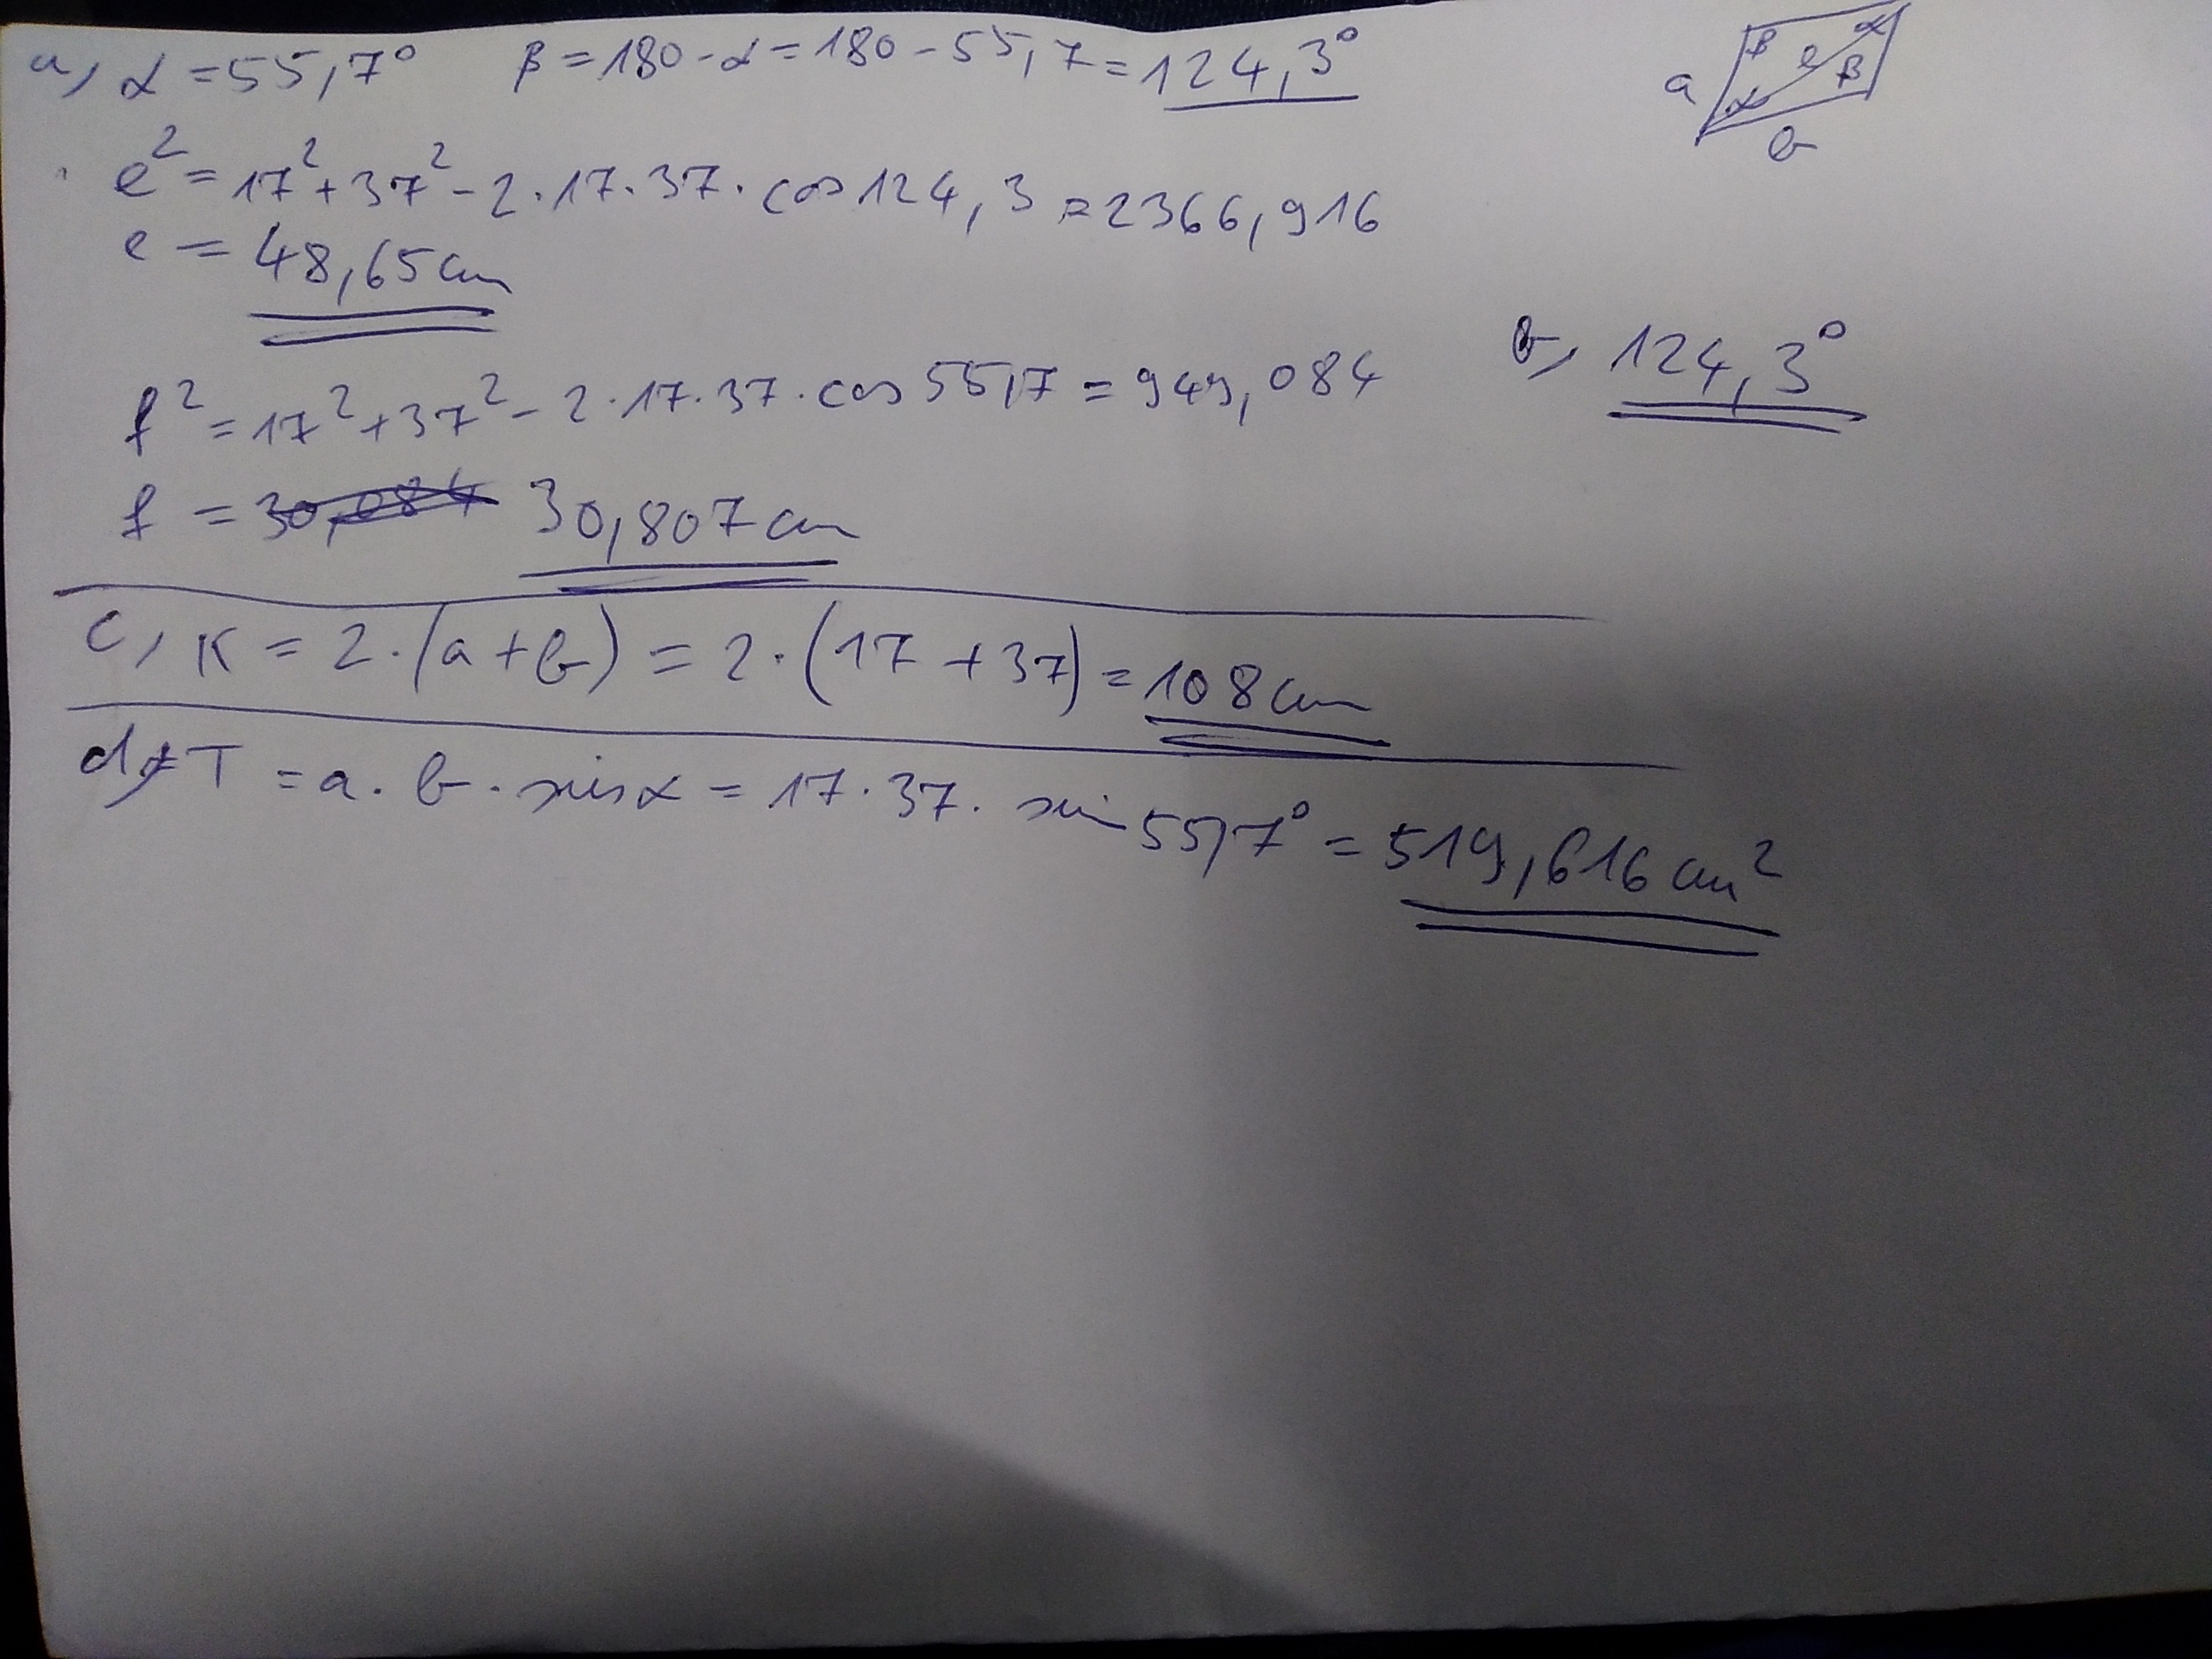 a, α = 55,7° β = 180 - α = 180 - 55,7 = 124,3°
β α
e
a α β
b
e² = 17² + 37² - 2 · 17 · 37 · cos 124,3 = 2366,916
e = 48,65 cm
f² = 17² + 37² - 2 · 17 · 37 · cos 55,7 = 949,084
b, 124,3°
f = 30,084 30,807 cm
c, K = 2 · (a + b) = 2 · (17 + 37) = 108 cm
d, T = a · b · sin α = 17 · 37 · sin 55,7° = 519,616 cm²